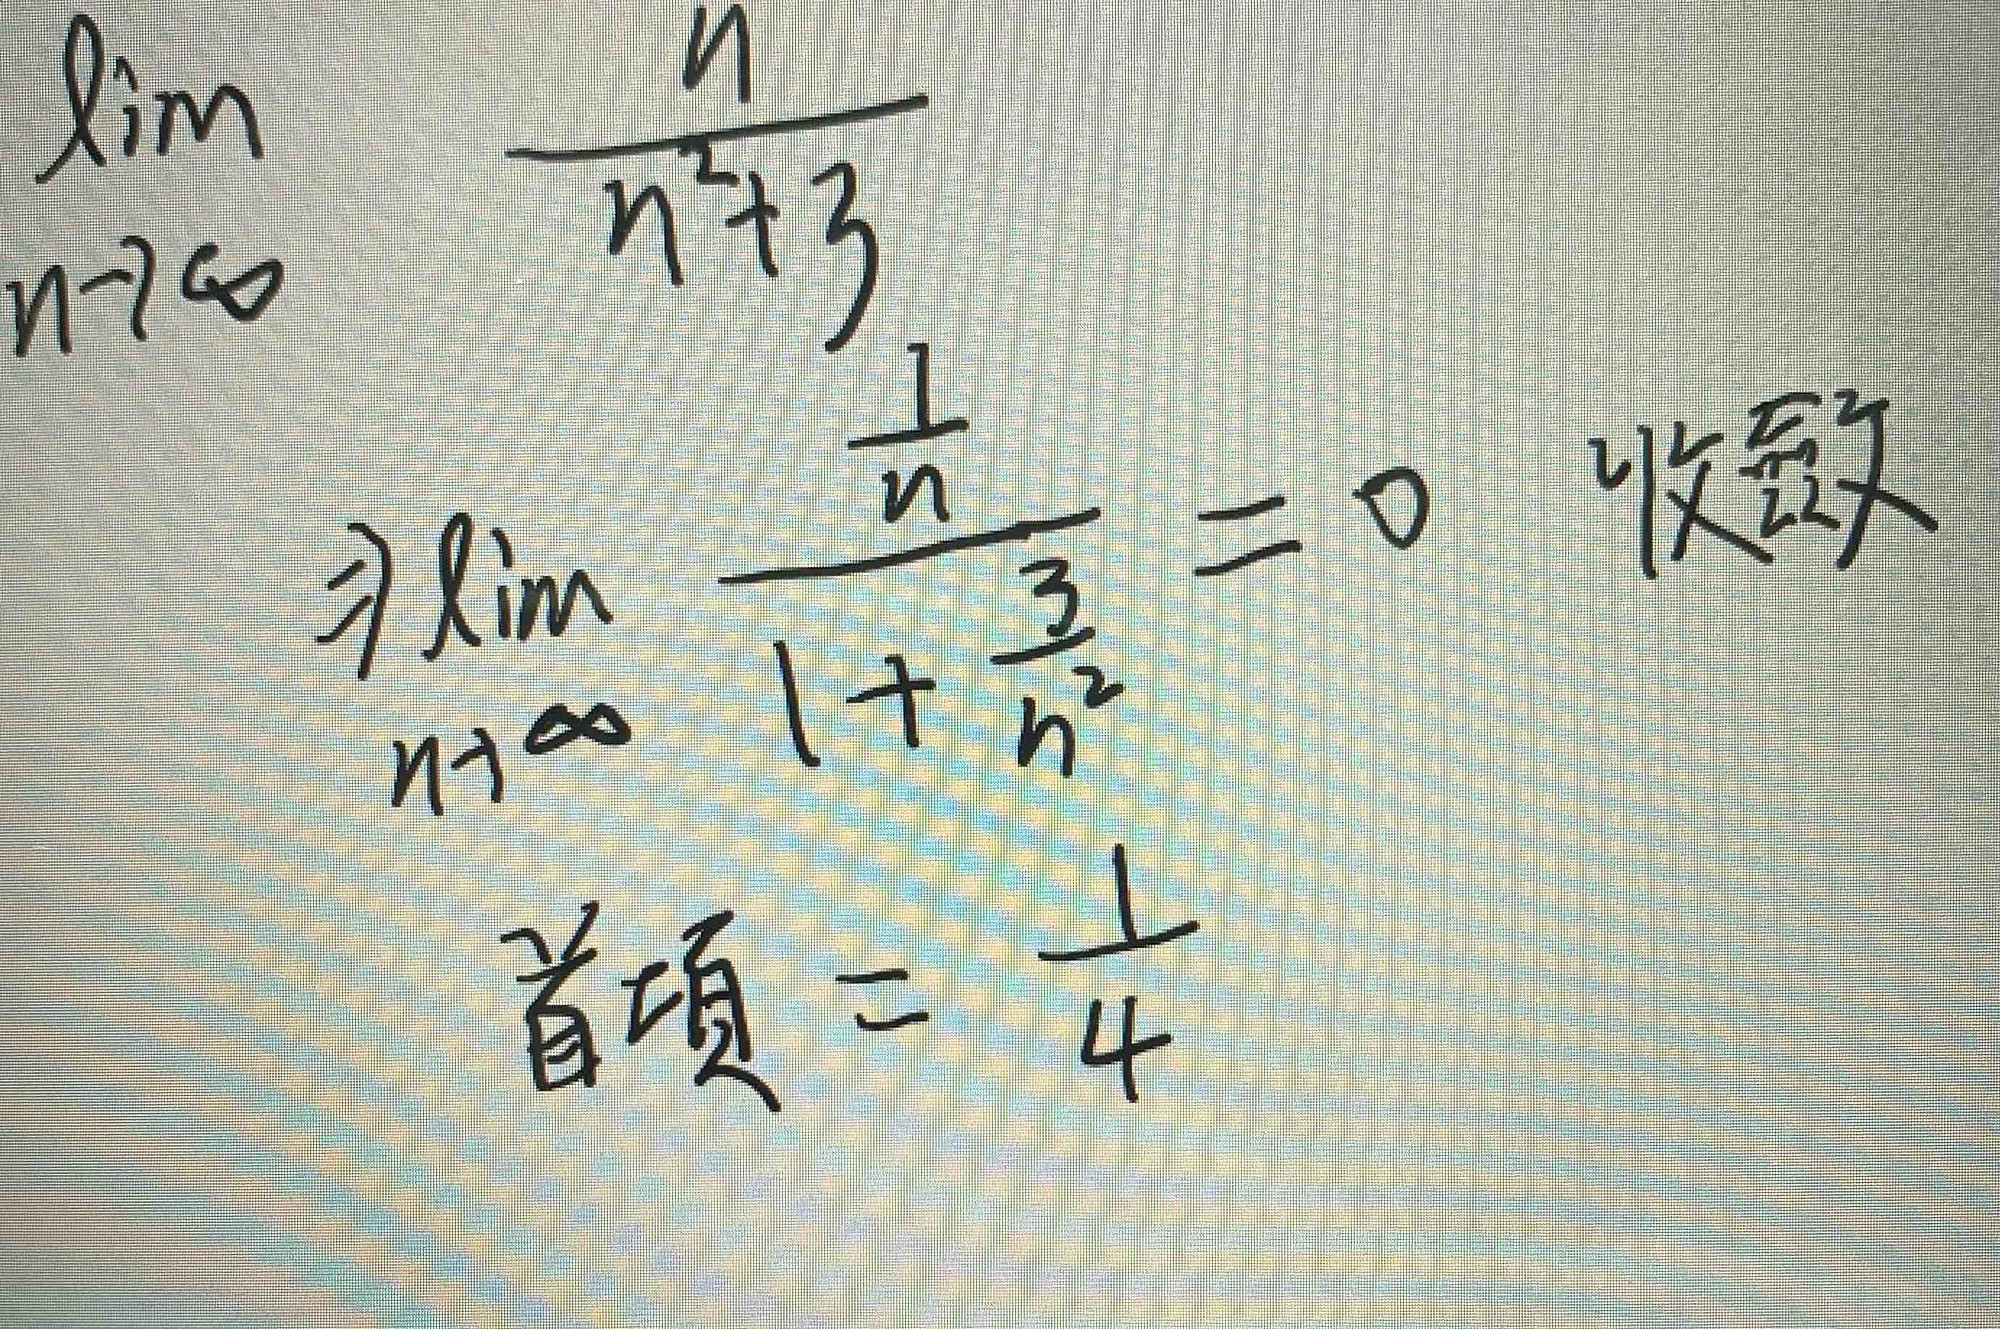 lim n→∞ n/(n²+3)
⇒ lim n→∞ (1/n)/(1+3/n²) = 0 收斂
首項 = 1/4